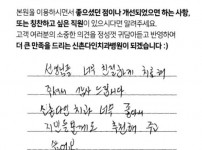 본원을 이용하시면서 좋으셨던 점이나 개선되었으면 하는 사항,
또는 칭찬하고 싶은 직원이 있으시다면 알려주세요.
고객 여러분의 소중한 의견을 정성껏 귀담아듣고 반영하여
더 큰 만족을 드리는 신촌다인치과병원이 되겠습니다 :)
선생님들 너무 친절하게 치료해
주셔서 감사 드립니다
소중한 치과 너무 좋아서
지인분들께도 추천해 주고
싶어요